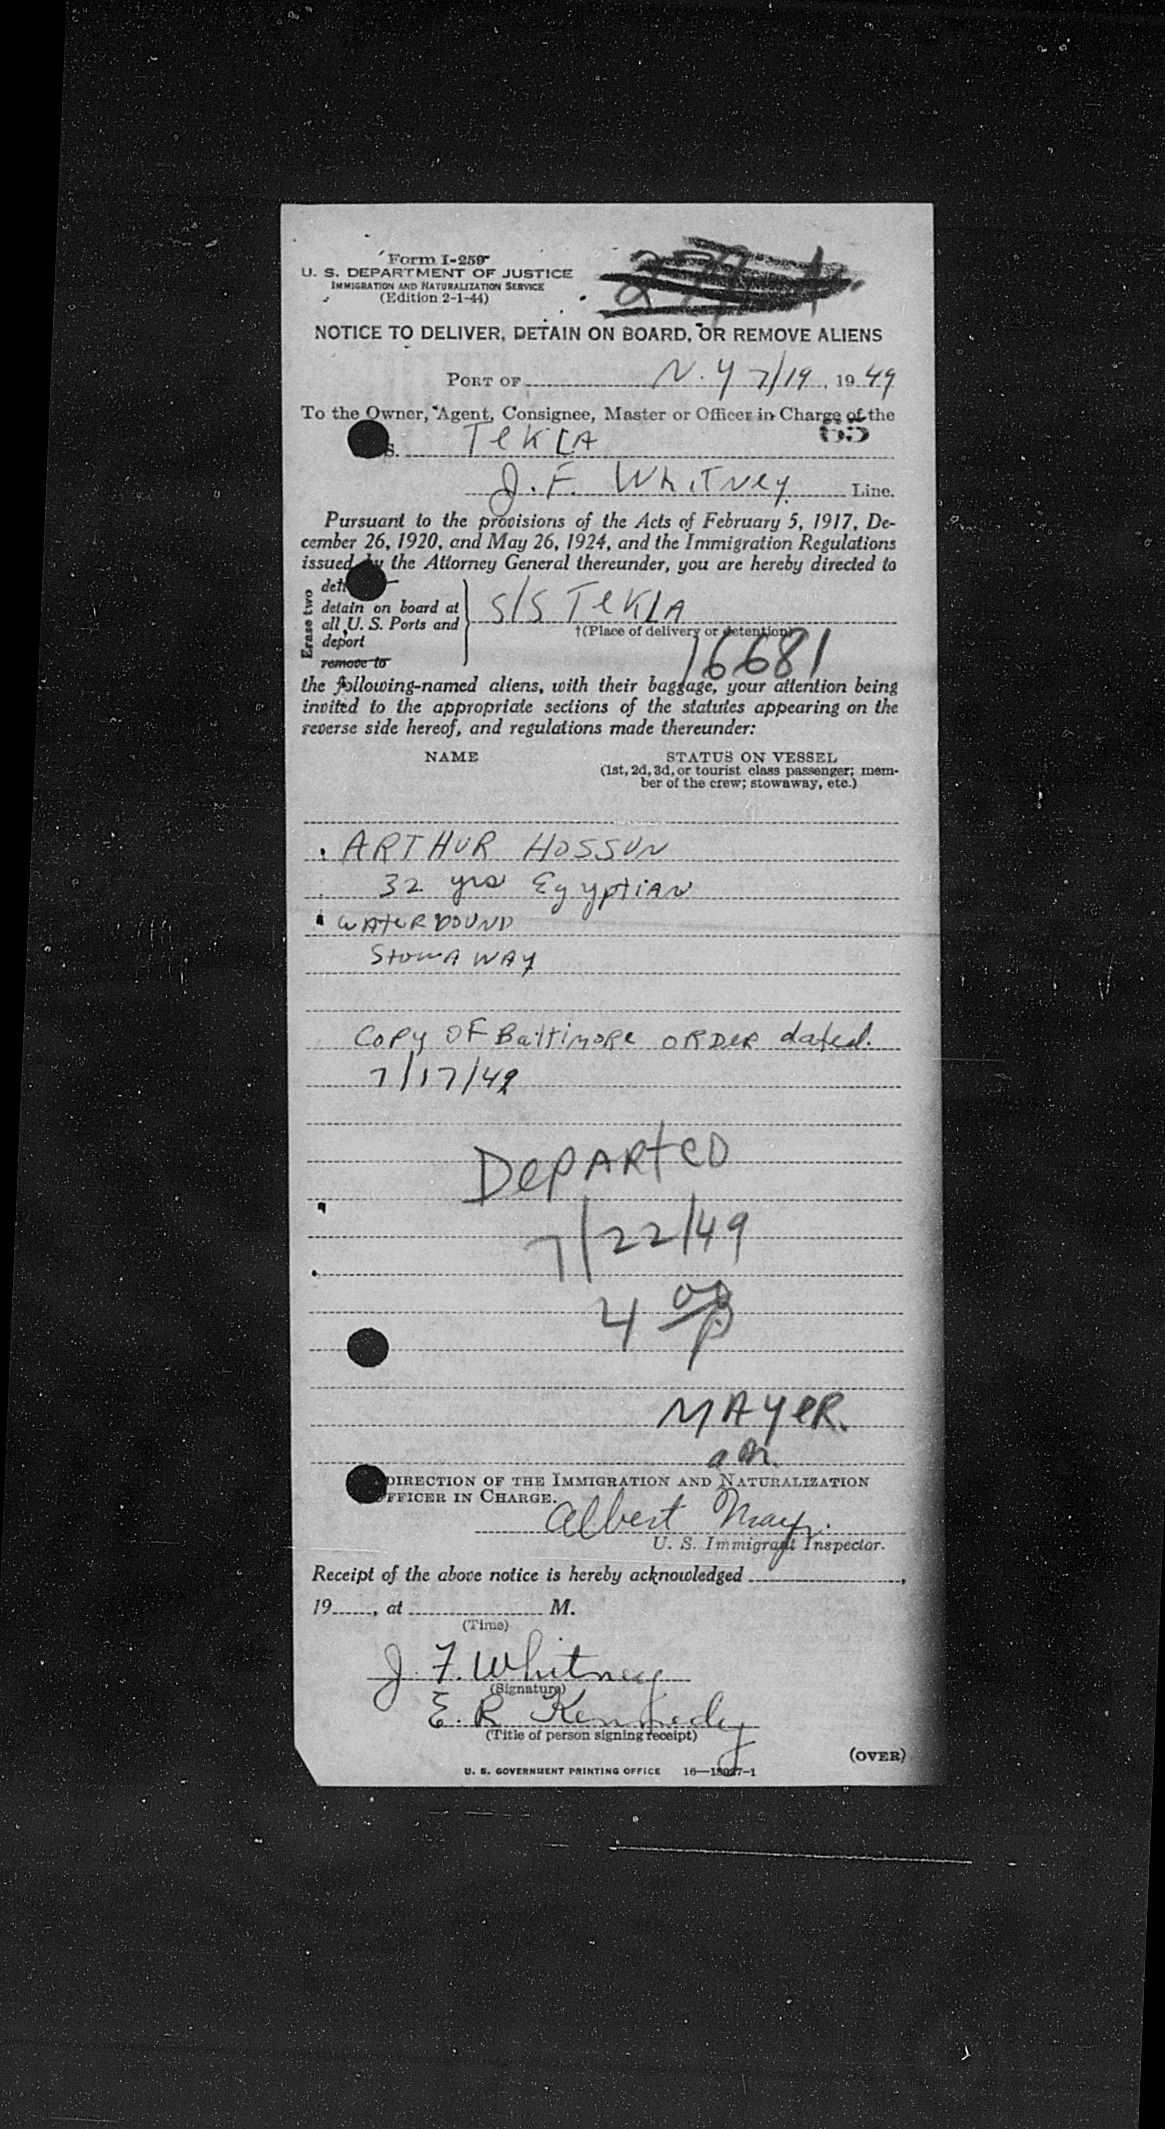 Form I-259
U. S. DEPARTMENT OF JUSTICE
IMMIGRATION AND NATURALIZATION SERVICE
(Edition 2-1-44)
NOTICE TO DELIVER, DETAIN ON BOARD, OR REMOVE ALIENS
PORT OF N. Y 7/19, 1949
To the Owner, Agent, Consignee, Master or Officer in Charge of the
65
S. TeKLA
J. F. WhiTNey Line.
Pursuant to the provisions of the Acts of February 5, 1917, De-
cember 26, 1920, and May 26, 1924, and the Immigration Regulations
issued by the Attorney General thereunder, you are hereby directed to
Erase two
detain on board at
all U. S. Ports and
deport
remove to
S/S TeKLA
†(Place of delivery or detention)
16681
the following-named aliens, with their baggage, your attention being
invited to the appropriate sections of the statutes appearing on the
reverse side hereof, and regulations made thereunder:
NAME
STATUS ON VESSEL
(1st, 2d, 3d, or tourist class passenger; mem-
ber of the crew; stowaway, etc.)
ARTHUR HOSSUN
32 yrs Egyptian
WATERBOUND
StowAWAY
COPY OF Baltimore ORDER dated.
7/17/49
DEPARTED
7/22/49
4 00 P
MAYER.
am.
DIRECTION OF THE IMMIGRATION AND NATURALIZATION
OFFICER IN CHARGE.
Albert Mayer.
U. S. Immigrant Inspector.
Receipt of the above notice is hereby acknowledged
19, at M.
(Time)
J. F. Whitney
(Signature)
E. R Kennedy
(Title of person signing receipt)
(OVER)
U. S. GOVERNMENT PRINTING OFFICE 16—18027-1